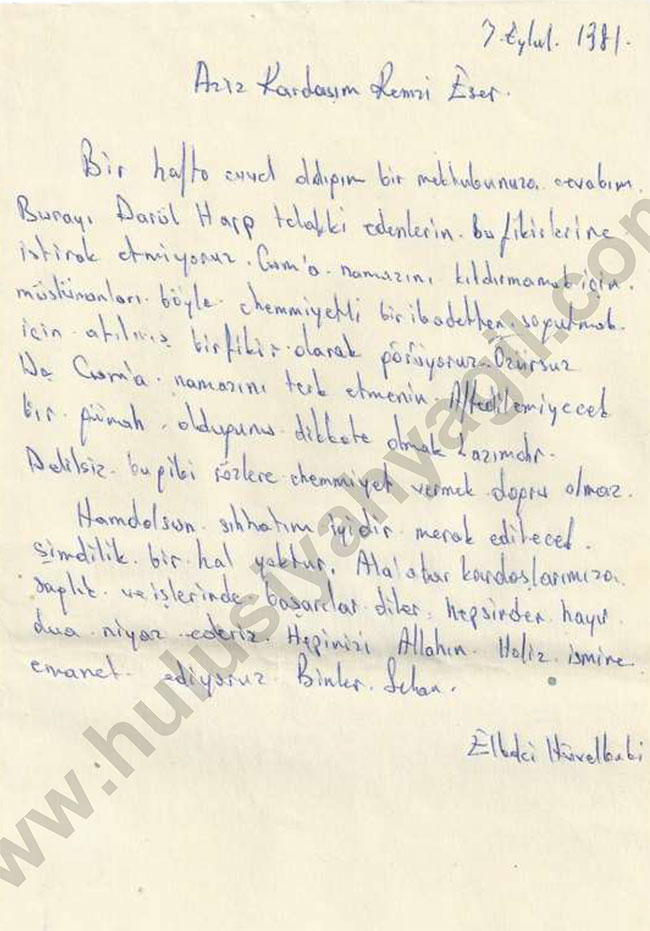 7. Eylül. 1981.
Aziz Kardaşım Remzi Eser.
Bir hafta evvel aldığım bir mektubunuza. cevabım.
Burayı Darül Harp telakki edenlerin. bu fikirlerine
iştirak etmiyoruz. Cum'a. namazını kıldırmamak için.
müslümanları. böyle. ehemmiyetli bir ibadetten. soğutmak.
için. atılmış birfikir. olarak görüyoruz. Özürsuz
Da Cum'a. namazını terk etmenin. Affedilemiyecek
bir. günah. olduğunu. dikkate almak Lazımdır.
Delilsiz. bu gibi sözlere ehemmiyet vermek doğru olmaz.
Hamdolsun. sıhhatım iyidir merak edilecek.
şimdilik. bir hal yoktur. Ala'akar kardaşlarımıza.
sağlık. ve işlerinde. başarılar diler. hepsinden hayır
dua. niyaz ederiz. Hepinizi Allahın. Hafiz ismine.
emanet. ediyoruz Binler. Selam.
Elbaki Hüvelbaki
www.hulusiyahyagil.com